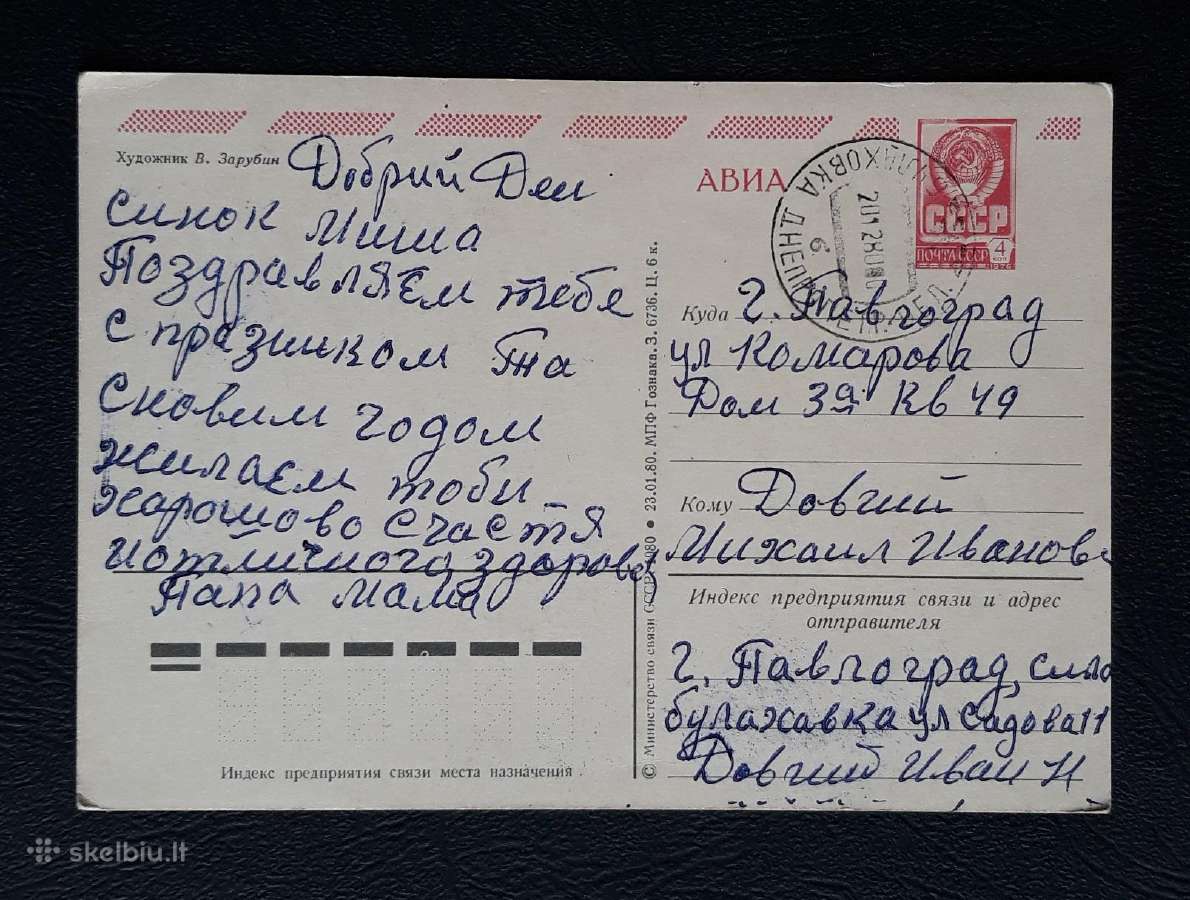 Художник В. Зарубин
Добрий Ден
синок Миша
Поздравляем тебе
с празником та
Сновим годом
жилаем тоби
харошово счастя
иотличного здоровя
Папа мама
Индекс предприятия связи места назначения
© Министерство связи СССР. 1980 ● 23.01.80. МПФ Гознака. З. 6736. Ц. 6 к.
АВИА
СССР
ПОЧТА СССР
4
КОП
1978
Куда г. Павлоград
ул Комарова
Дом 3а Кв 49
Кому Довгий
Михаил Иванов
Индекс предприятия связи и адрес
отправителя
г. Павлоград,
булахавка ул Садова 11
Довгий Иван Н
skelbiu.lt